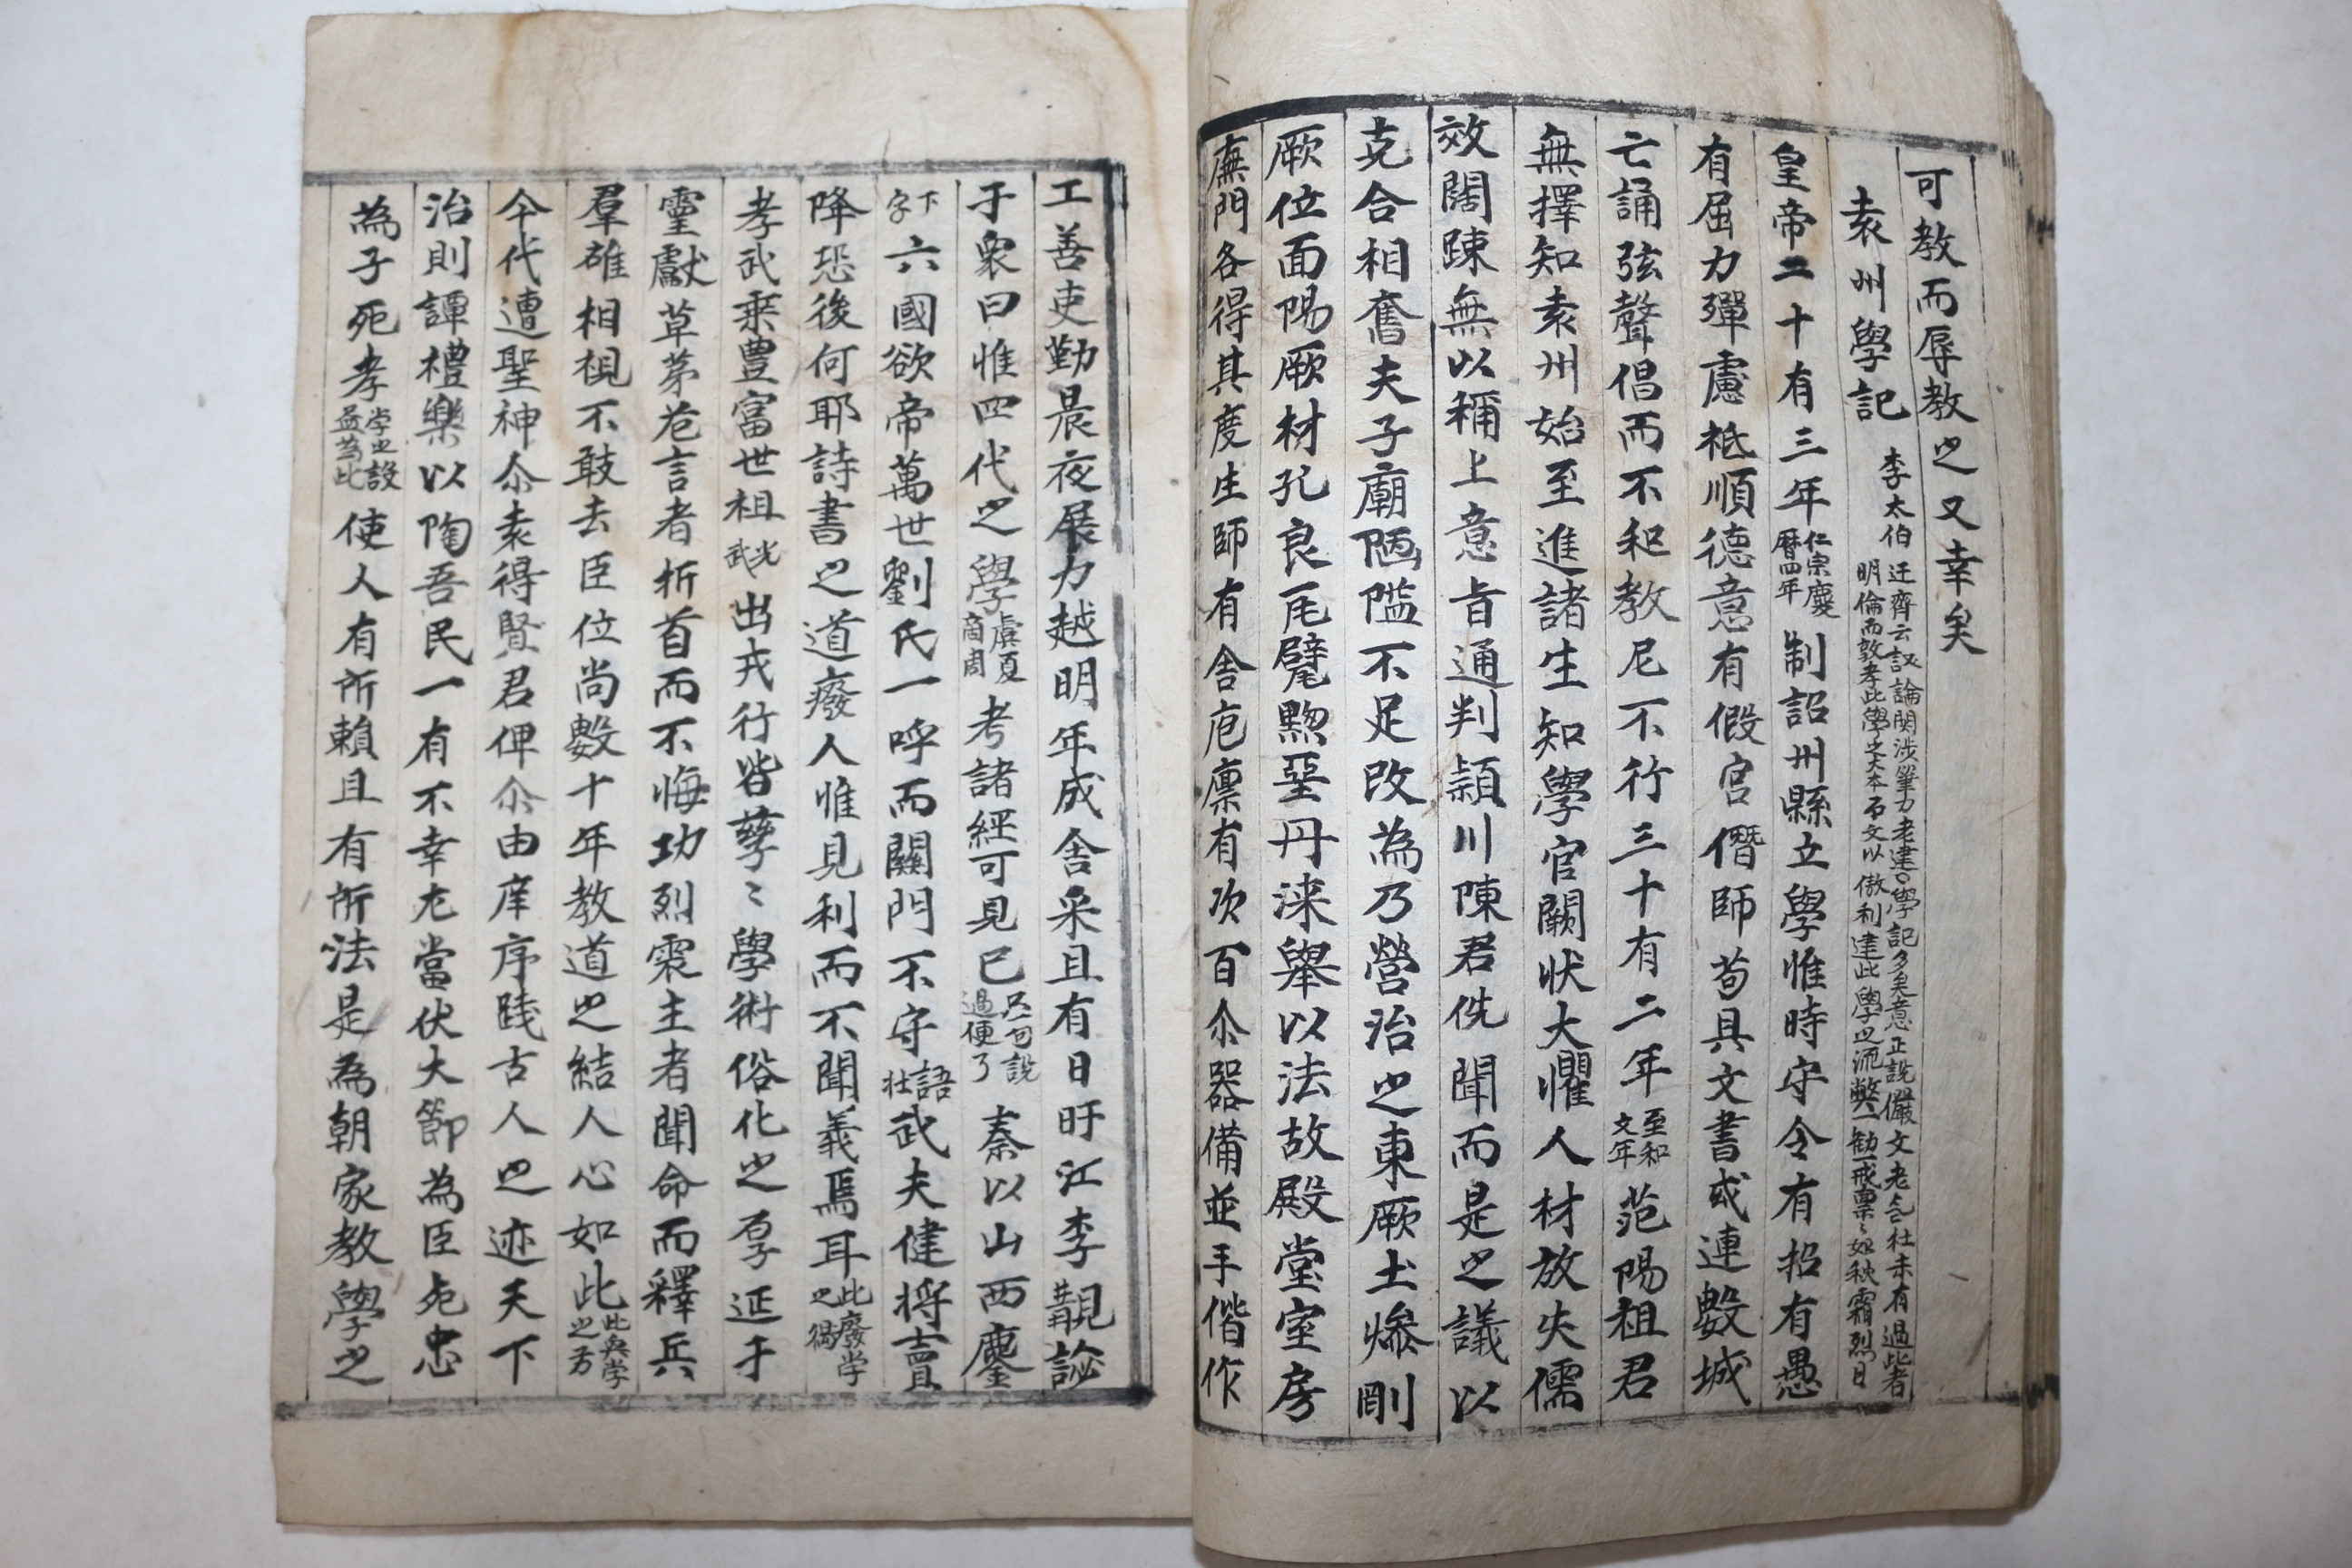 可教而辱教之又幸矣
袁州學記 李太伯 迂齊云議論関涉筆力老建○學記多矣意正說儼文老氣壮未有過此者
明倫而敦孝此學之大本石文以傲利達此學之流弊一勧一戒凛〻如秋霜烈日
皇帝二十有三年 仁宗慶
曆四年 制詔州縣立學惟時守令有招有愚
有屈力殫慮祗順德意有假宮僭師苟具文書或連數城
亡誦弦聲倡而不和教尼不行三十有二年 至和
文年 范陽祖君
無擇知袁州始至進諸生知學官闕状大懼人材放失儒
效闊踈無以稱上意旨通判潁川陳君侁聞而是之議以
克合相奮夫子廟陋隘不足改為乃營治之東厥土燥剛
厥位面陽厥材孔良瓦甓黝堊丹漆舉以法故殿堂室房
廡門各得其度生師有舍庖廩有次百尒器備並手偕作
工善吏勤晨夜展力越明年成舍采且有日旴江李覯諗
于衆曰惟四代之學 虞夏
商周 考諸經可見已 只句說
過便了 秦以山西鏖
六國欲 下
字 帝萬世劉氏一呼而關門不守 語
壮 武夫健将賣
降恐後何耶詩書之道廢人惟見利而不聞義焉耳 此廢学
之禍
孝武乘豊富世祖 光
武 出戎行皆孳〻學術俗化之厚延于
靈獻草茅危言者折首而不悔功烈震主者聞命而釋兵
羣雄相視不敢去臣位尚數十年教道之結人心如此 此興学
之芳
今代遭聖神尒袁得賢君俾尒由庠序踐古人之迹天下
治則譚禮樂以陶吾民一有不幸尤當伏大節為臣死忠
為子死孝 学之設
益為此 使人有所賴且有所法是為朝家教學之